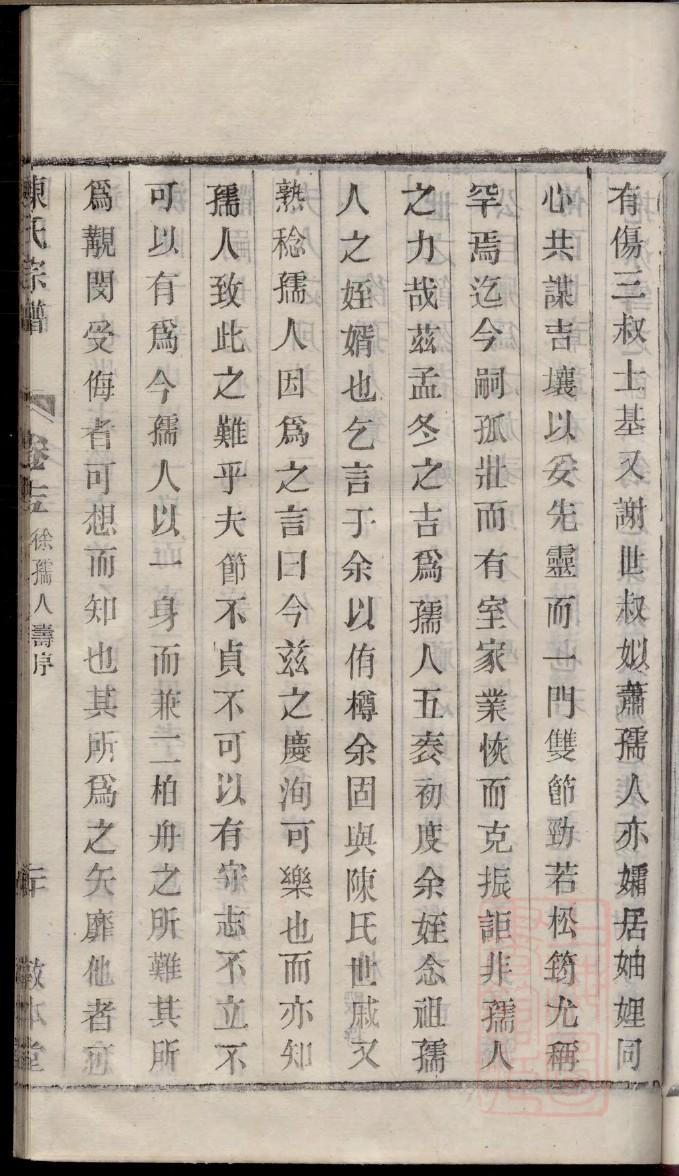 有傷三叔士基又謝世叔姒蕭孺人亦孀居妯娌同
心共謀吉壤以妥先靈而一門雙節勁若松筠尤稱
罕焉迄今嗣孤壯而有室家業恢而克振詎非孺人
之力哉茲孟冬之吉爲孺人五袠初度余姪念祖孺
人之姪婿也乞言于余以侑樽余固與陳氏世戚又
熟稔孺人因爲之言曰今兹之慶洵可樂也而亦知
孺人致此之難乎夫節不貞不可以有守志不立不
可以有爲今孺人以一身而兼二柏舟之所難其所
爲覯閔受侮者可想而知也其所爲之矢靡他者亦
陳氏宗譜 卷十五 徐孺人壽序 二十 敦本堂